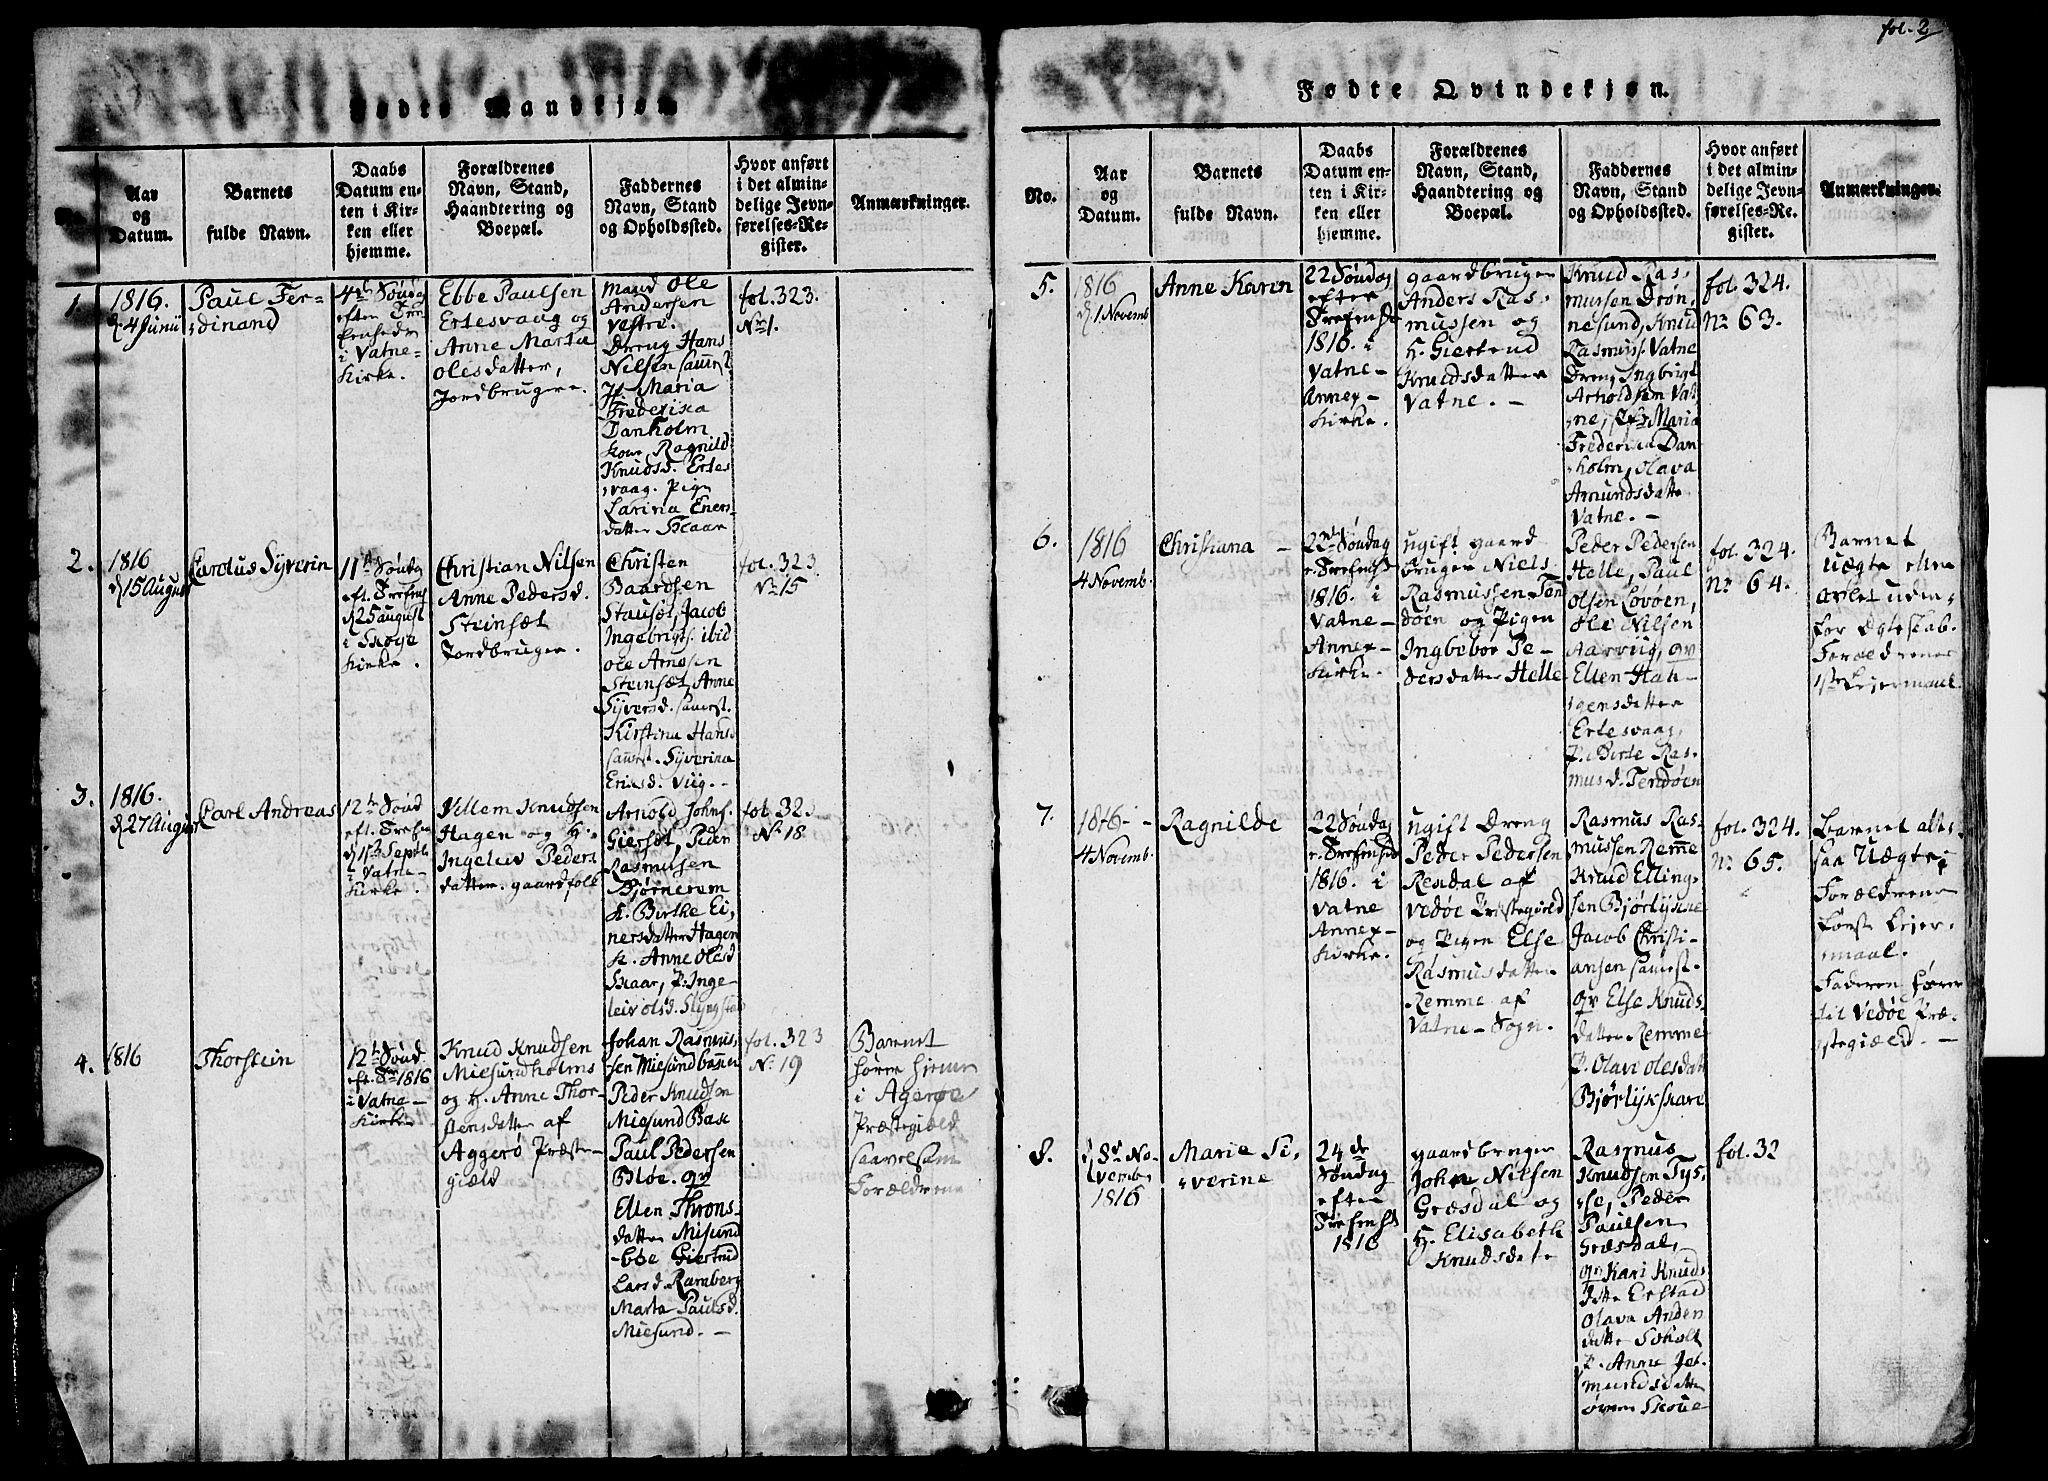 fol. 2
Fødte Mandkjøn
Aar og Datum.
Barnets fulde Navn.
Daabs Datum enten i Kirken eller hjemme.
Forældrenes Navn, Stand, Haandtering og Boepæl.
Faddernes Navn, Stand og Opholdssted.
Hvor anført i det almindelige Jevnførelses-Register.
Anmærkninger.
1.
1816.
d. 4 Junii
Paul Fer-
dinand
4de Søndag
efter
i Vatne-
Kirke.
Ebbe Paulsen
Ertesvaag og
Anne Marta
Olesdatter,
Jordbrugere.
Mand Ole
Andersen
Vestre.
Dreng Hans
Nilsen
Jf. Maria
Frederica
Danholm
Kone Ragnild
Knudsd. Ertes
vaag. Pige
Larina Eners
datter Skaar
fol. 323.
No 1.
2.
1816
d 15 August
Carolus Syverin
11te Sønda
eft. Trefens
d 25 august
i Skoje
Kirke.
Christian Nilsen
Anne Pedersd.
Steinsæt
Jordbruger.
Christen
Baardsen
Stauset, Jacob
Ingebrigts. ibid
Ole Arnesen
Steinsæt, Anne
Syversd. samest.
Kirstina Hansd
samest. Syverina
Ericsd. Viig. -
fol. 323
No 15
3.
1816.
d 27 August
Carl Andreas
12te Sønd
eft. Trefen
d 1ste Septb
i Vatne-
Kirke.
Villem Knudsen
Hagen og K.
Ingeleiv Peders
datter. gaardfolk
Arnold Johns.
Giersæt, Peder
Rasmusen
Bjørnerem
K. Birthe Ei,
nersdatter Hagen
K. Anne Olesd
Skaar, P. Inge
leiv Olsd. Slyngstad
fol. 323
No 18
4.
1816
Thorstein
12te Sønd
eft. Tr 1816
i Vatne-
Kirke
Knud Knudsen
Miesundholms
og K. Anne Thor-
stensdatter af
Aggerø Præste-
gield
Johan Rasmus,
sen Miesund
Peder Knudsen
Miesund Base
Paul Pedersen
Bløe. qv
Ellen Throns-
datter Misund
Ebbe Giertrud
Larsd. Ramberg
Marta Paulsd.
Miesund. -
fol. 323
No 19
Barnet
hører hiem
i Agerøe
Præstegield
saavelsom
Forældrene
Fødte Qvindekjøn.
No.
Aar og Datum.
Barnets fulde Navn.
Daabs Datum enten i Kirken eller hjemme.
Forældrenes Navn, Stand, Haandtering og Boepæl.
Faddernes Navn, Stand og Opholdssted.
Hvor anført i det almindelige Jevnførelses-Register.
Anmærkninger.
5.
1816
d 1 Novemb
Anne Karen
22 Søndag
efter
Trefensh
1816. i
Vatne-
Annex-
Kirke.
gaardbruger
Anders Ras-
mussen og
K. Giertrud
Knudsdatter
Vatne. -
Knud Ras-
mussen Drøn,
nesund, Knud
Rasmuss. Vatne
Dreng Ingbrigt
Arholdsen Vat
ne, Jfr Maria
Frederica Dan
holm, Olava
Amundsdatter
Vatne. -
fol. 324.
No 63.
6.
1816
4 Novemb.
Christiana -
23de Søndag
e. Trefensh
1816. i
Vatne-
Annex-
Kirke.
ugift gaard
bruger Niels
Rasmussen Ten
døen og Pigen
Ingbebor Pe-
dersdatter Helle
Peder Pedersen
Helle, Paul
Olsen Løvøen,
Ole Nilsen
Aarviig, qv
Ellen Hah-
gensdatter
Ertesvaag,
P. Birte Ras-
musd. Tendøen
fol. 324.
No 64.
Barnet
Uægte eller
avlet uden,
for Ægteskab.
Forældrenes
1ste Leiermaal.
7.
1816 - -
4 Novemb.
Ragnilde
22 Søndag
e. Trefensh
1816. i
Vatne
Annex-
Kirke.
ugift Dreng
Peder Pedersen
Resdal af
Vedøe Præstegield
og Pigen Else
Rasmusdatter
Remme af
Vatne-Sogn.
Rasmus Ras-
mussen Remme
Knud Elling-
sen Bjørlykke
Jacob Christi-
ansen samest.
qv Else Knuds,
datter Remme
P. Olavi Olesdatt
Bjørlykskare
fol. 324.
No 65.
Barnet alt-
saa Uægte,
Forældrene
første Leier-
maal.
Faderen hører
til Vedøe Præ-
stegield. -
8.
d 8de No-
vemb.
1816
Marie Si,
verine
24de
Søndag
efter
Trefensh
1816
gaardbruger
John Nilsen
Græsdal og
K. Elisabeth
Knudsdatte
Rasmus
Knudsen Tys,
se, Peder
Paulsen
Græsdal,
qv Kari Knuds,
datte Erstad
Olava Anders
datte Søholt
P. Anne Jet-
mundsdatte
øvre Skoue
fol. 32